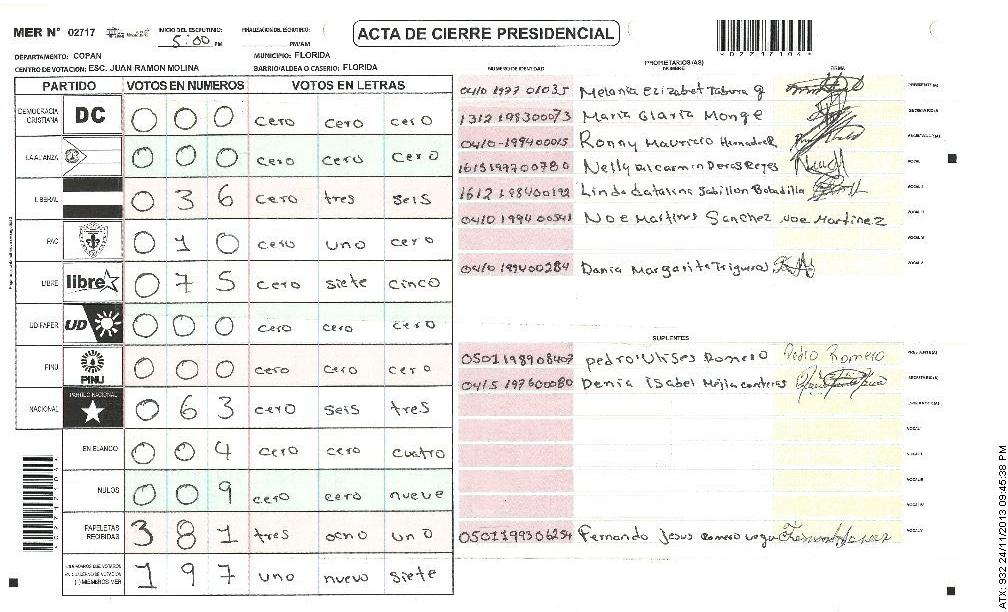 MER N° 02717
INICIO DEL ESCRUTINIO: 5:00 PM
FINALIZACION DEL ESCRUTINIO: PM/AM
ACTA DE CIERRE PRESIDENCIAL
DEPARTAMENTO: COPAN
MUNICIPIO: FLORIDA
CENTRO DE VOTACION: ESC. JUAN RAMON MOLINA
BARRIO/ALDEA O CASERIO: FLORIDA
PARTIDO VOTOS EN NUMEROS VOTOS EN LETRAS
DEMOCRACIA CRISTIANA DC 0 0 0 cero cero cero
LA ALIANZA 0 0 0 cero cero cero
LIBERAL 0 3 6 cero tres seis
PAC 0 1 0 cero uno cero
LIBRE libre 0 7 5 cero siete cinco
UD FAPER UD 0 0 0 cero cero cero
PINU PINU 0 0 0 cero cero cero
NACIONAL PARTIDO NACIONAL 0 6 3 cero seis tres
EN BLANCO 0 0 4 cero cero cuatro
NULOS 0 0 9 cero cero nueve
PAPELETAS RECIBIDAS 3 8 1 tres ocho uno
1 9 7 uno nuevo siete
NUMERO DE IDENTIDAD PROPIETARIOS(AS) NOMBRE FIRMA
0410 1977 01035 Melania Elizabet Tabora g PRESIDENTE(A)
1312 198300073 Maria Gloria Monge SECRETARIO(A)
0410-199400015 Ronny Mauricio
1615197700780 Nelly del carmin Deras Reyes
1612 198400192 Linda Catalina Sabillon Bobadilla VOCAL I
0410 1994 00541 Noe Martines Sanchez Noe Martinez
0410 199400284 Dania Margarita Trigueros
SUPLENTES
0501198908407 pedro Ulises Romero Pedro Romero
0415 197600080 Denia ISabel Mejia contreras
0501199306254 Fernando Jesus Romero vega
ATX: 932 24/11/2013 09:45:38 PM